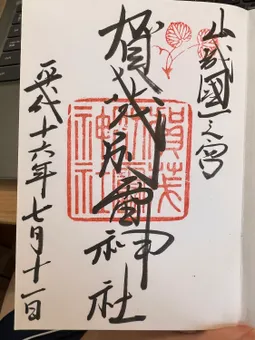 山城國一之宮
賀茂別雷神社
平成十六年七月十一日
賀茂
別雷
神社